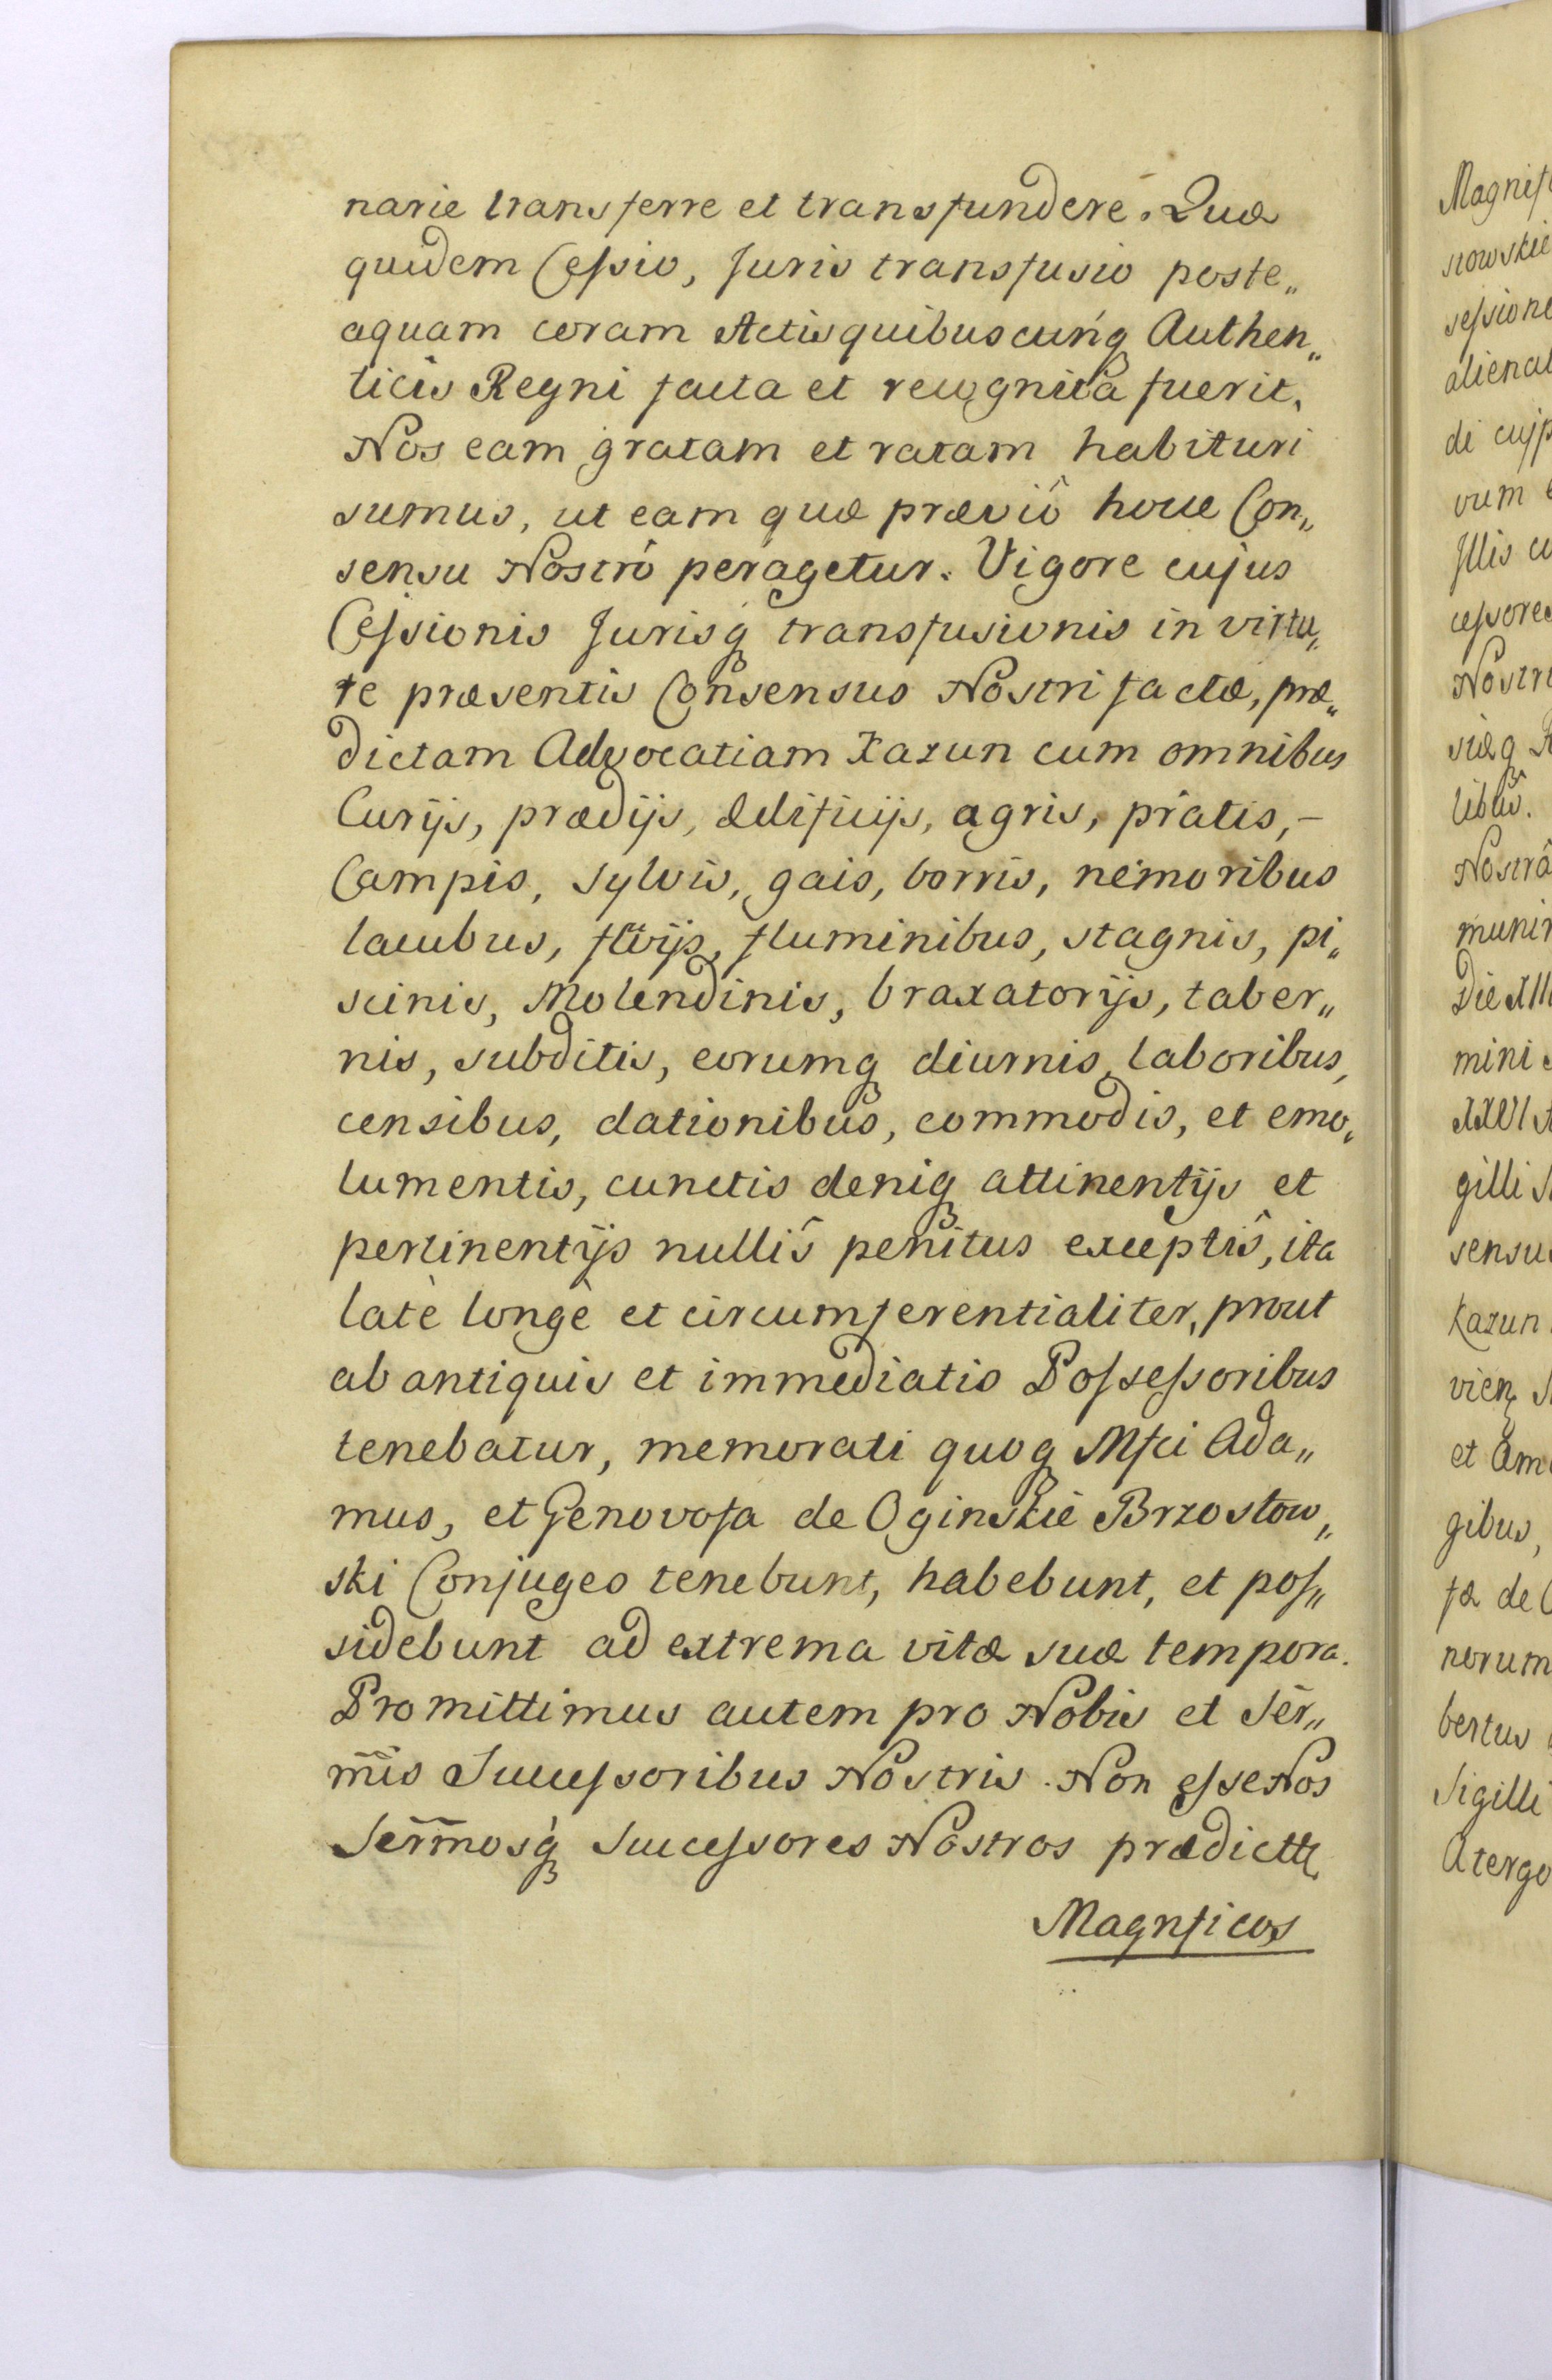 narie transferre et transfundere. Quæ
quidem Cessio, Juris transfusio poste„
aquam coram Actis quibuscunq Authen„
ticis Regni facta et recognita fuerit,
Nos eam gratam et ratam habituri
sumus, ut eam quæ præviô hocce Con„
sensu Nostrô peragetur. Vigore cujus
Cessionis Jurisq transfusionis in virtu„
te præsentis Consensus Nostri factæ, præ„
dictam Advocatiam Kazun cum omnibus
Curijs, prædijs, ædificijs, agris, pratis,–
Campis, sylvis, gais, borris, nemoribus
lacubus, flvijs, fluminibus, stagnis, pi„
scinis, Molendinis, braxatorijs, taber„
nis, subditis, eorumq diurnis laboribus,
censibus, dationibus, commodis, et emo„
lumentis, cunctis deniq attinentijs et
pertinentijs nullîs penitus exceptîs, ita
latè longè et circumferentialiter, prout
ab antiquis et immediatis Possessoribus
tenebatur, memorati quoq Mfci Ada„
mus, et Genovofa de Oginskie Brzostow„
ski Conjuges tenebunt, habebunt, et pos„
sidebunt ad extrema vitæ suæ tempora.
Promittimus autem pro Nobis et Ser„
mis Successoribus Nostris. Non esse Nos
Sermosq Successores Nostros prædictt
Magnficos
Magnif
stowskie
sessione
alienat
di cujp
vum
Illis cu
cessores
Nostri
siæq R
libus.
Nostrâ
munir
Die XIII
mini
XXVI
gilli S
sensus
Kazun
vien
et Am
gibus,
fæ de O
norum
bertus
Sigilli
Atergo